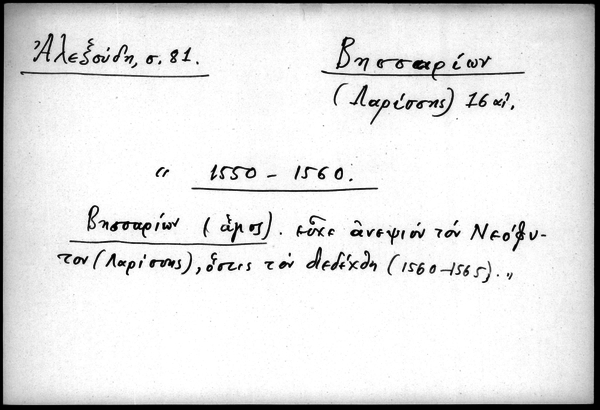 Ἀλεξούδη, σ. 81.
Βησσαρίων
(Λαρίσσης) 16 αἰ.
“ 1550 – 1560.
Βησσαρίων (ἅγιος). εἶχε ἀνεψιόν τόν Νεόφυ-
τον (Λαρίσσης), ὅστις τόν διεδέχθη (1560–1565).„